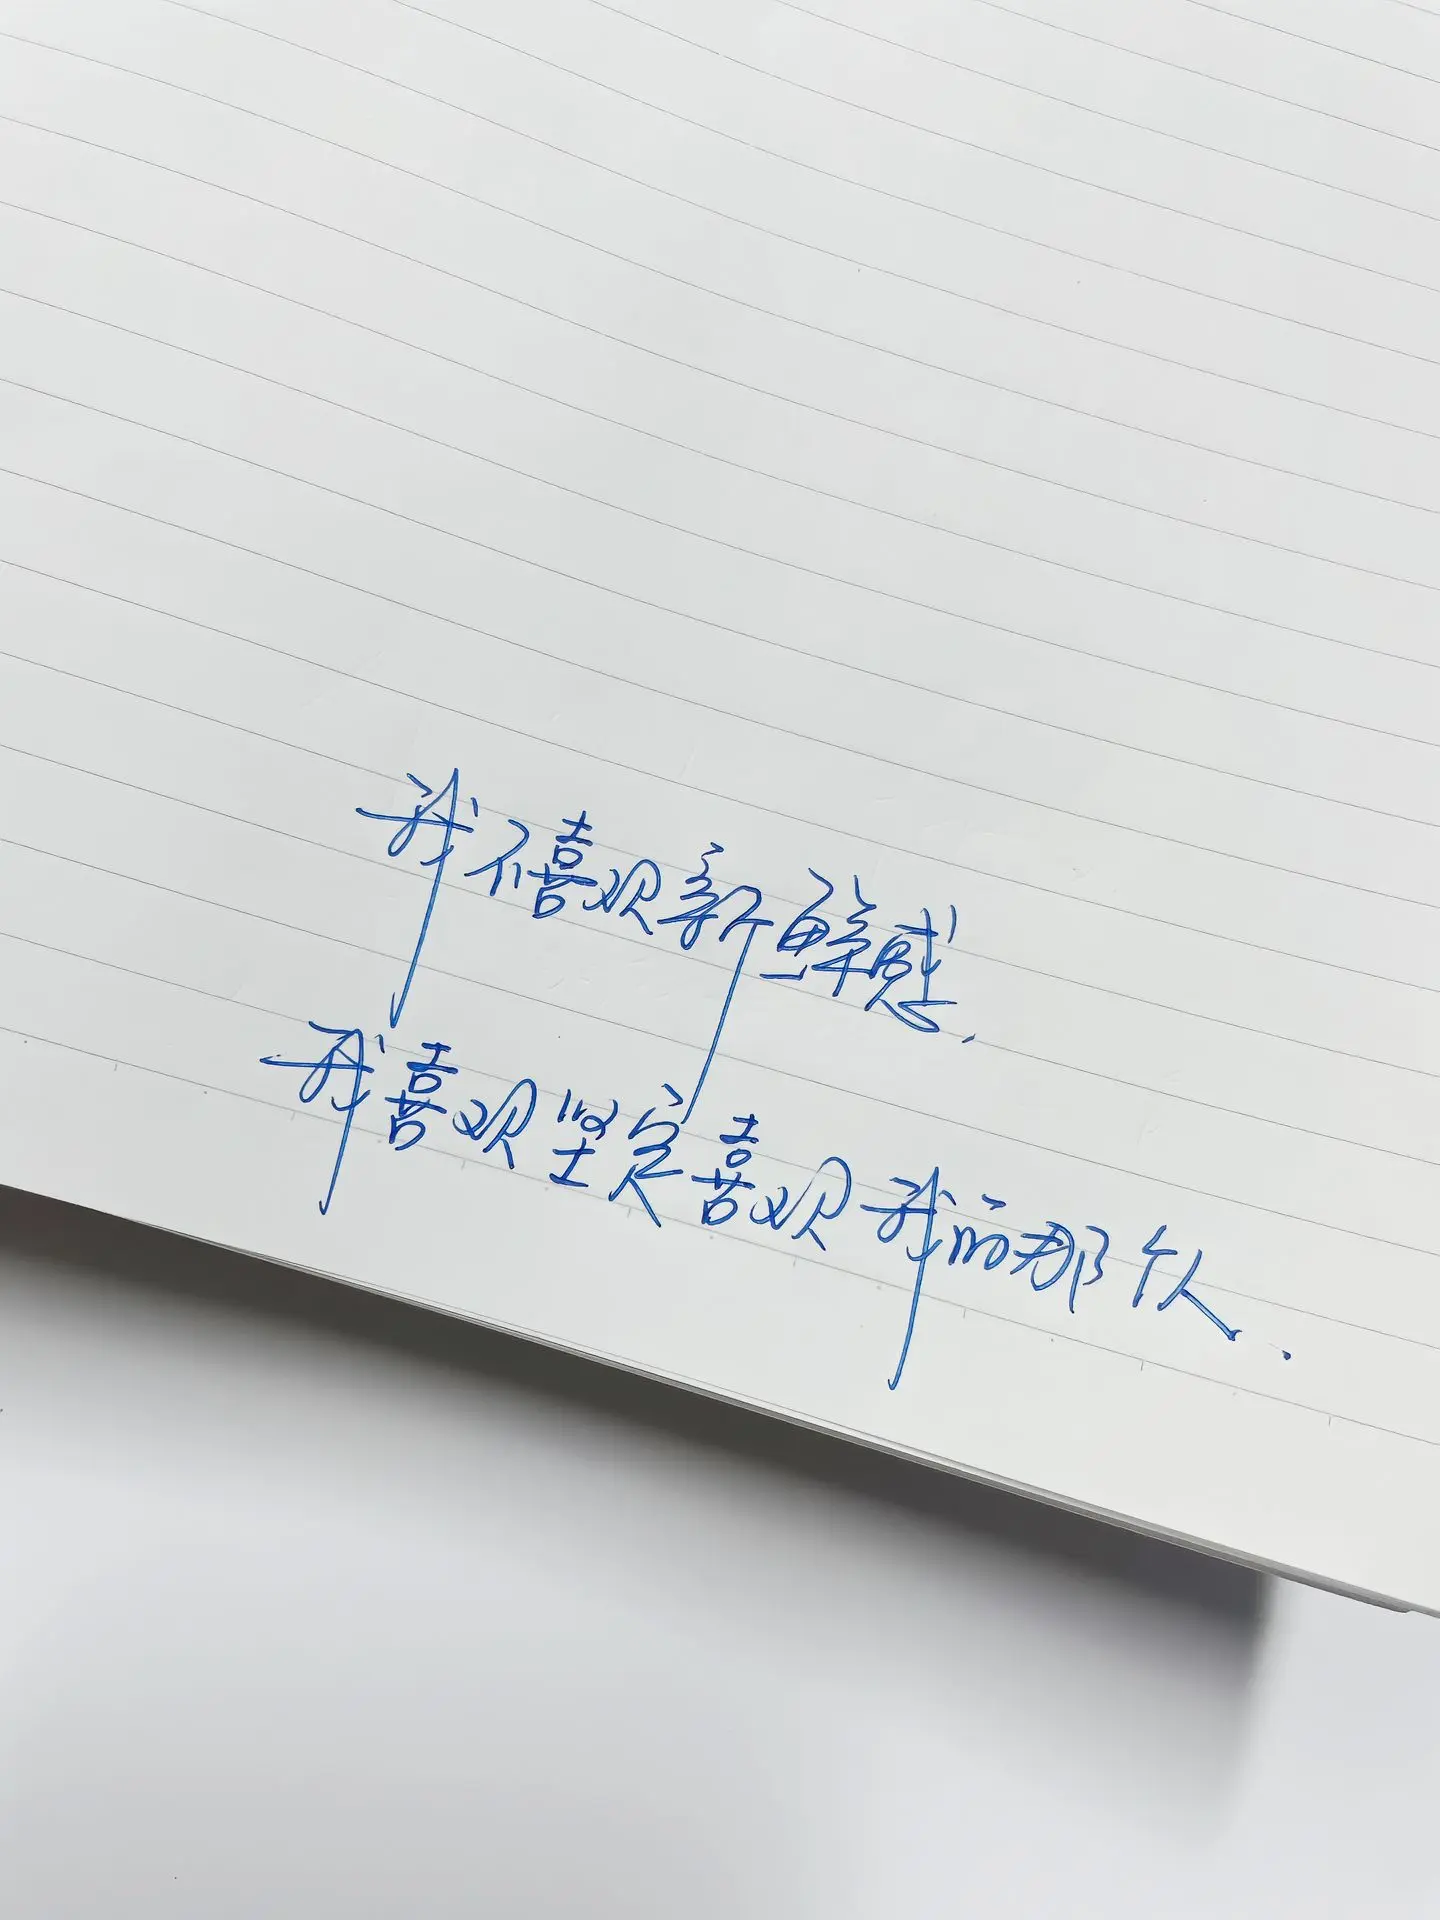 我不喜欢新鲜感,
我喜欢坚定喜欢我的那个人.